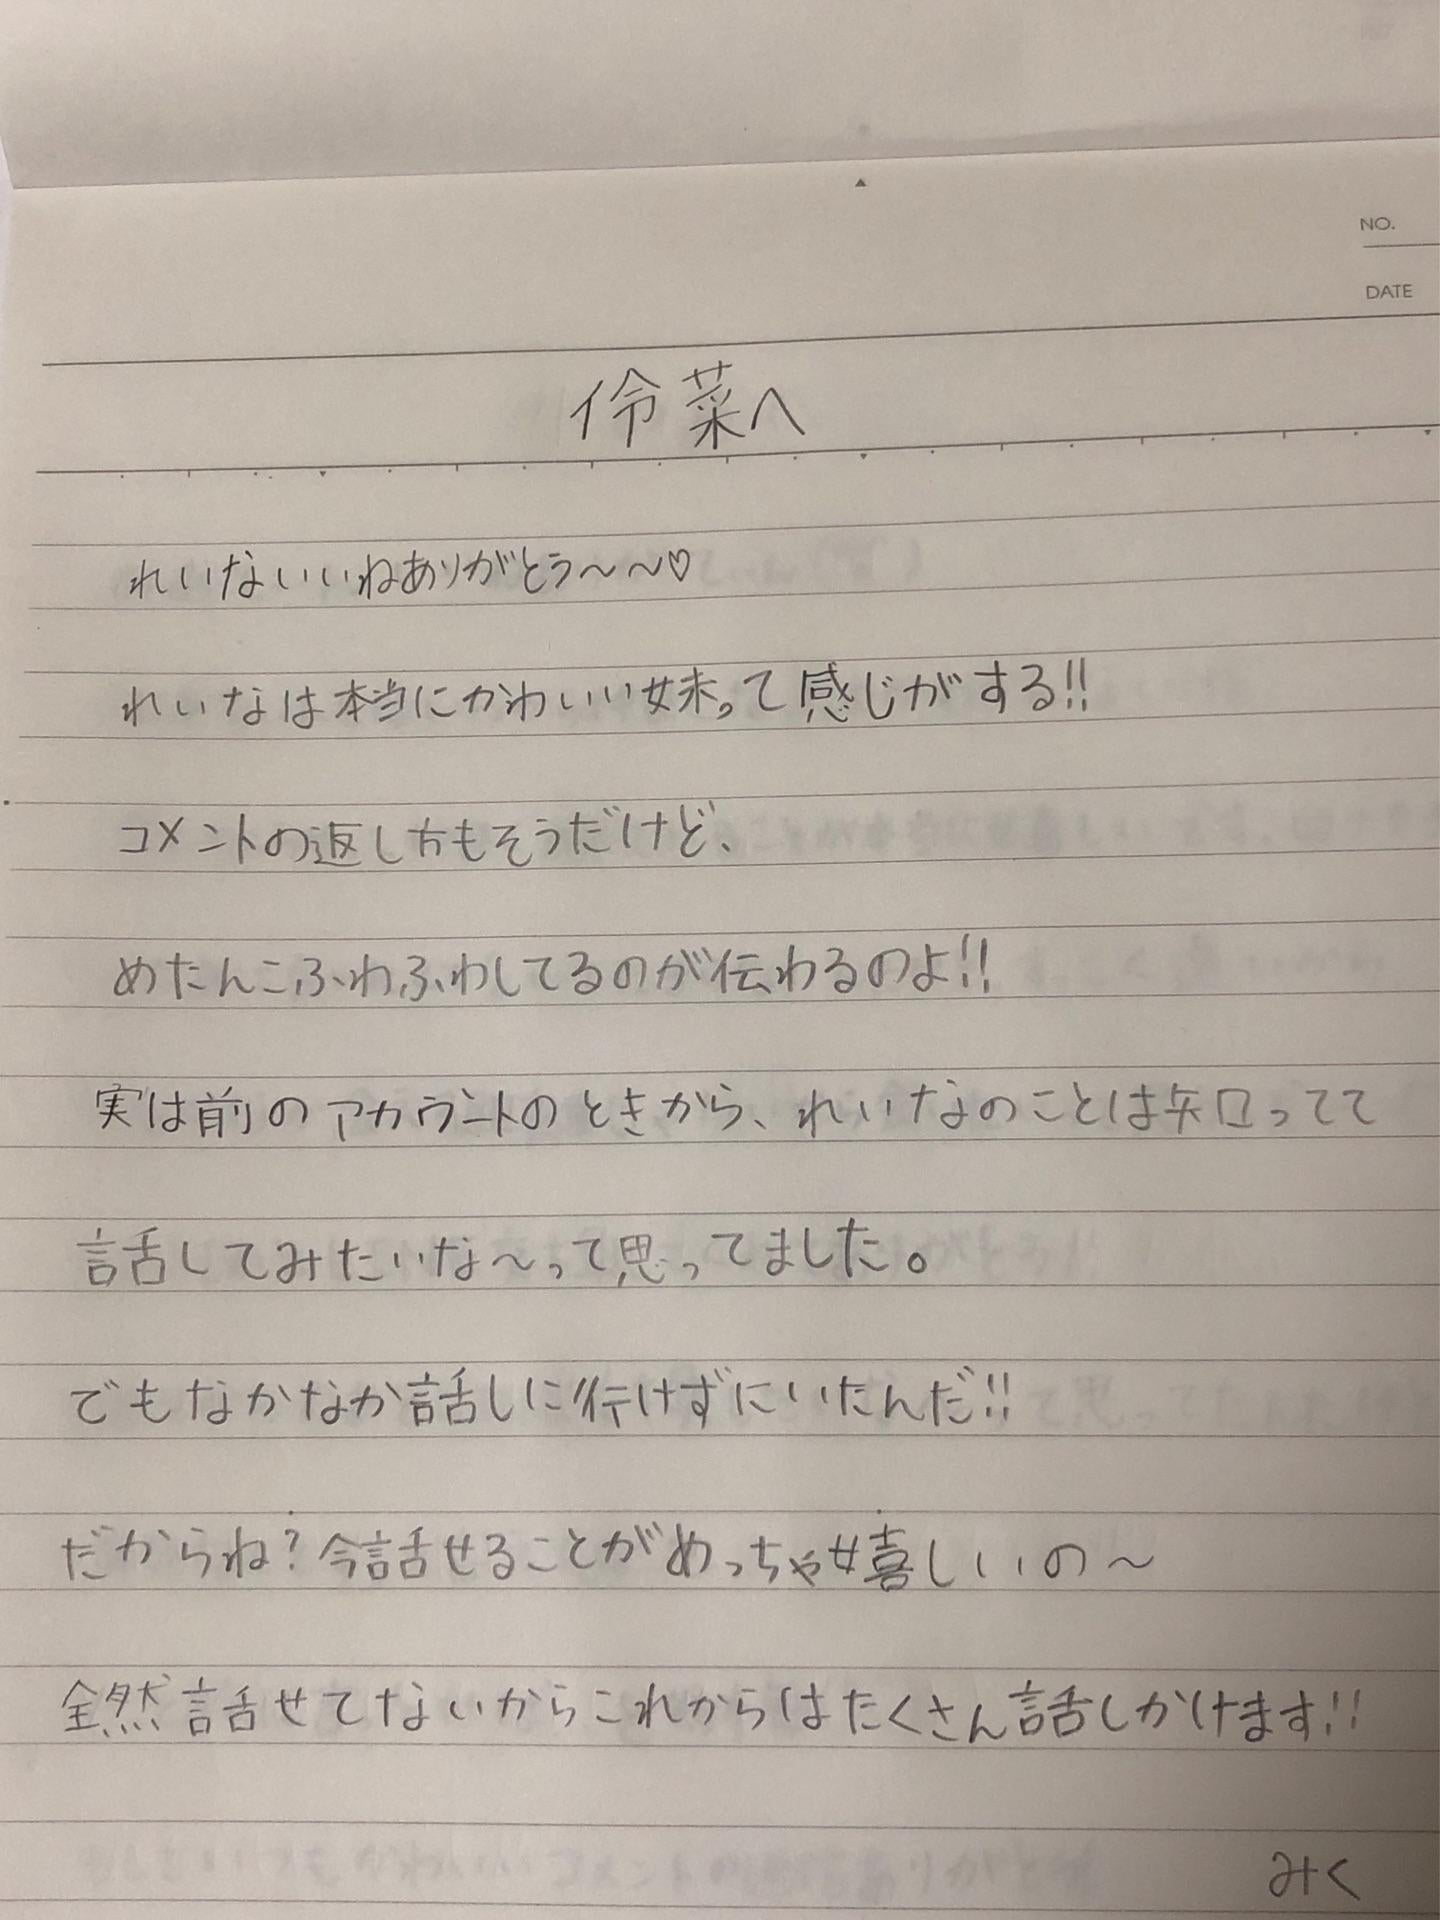 NO.
DATE
伶菜へ
れいないいねありがとう〜〜♡
れいなは本当にかわいい妹って感じがする!!
コメントの返し方もそうだけど、
めたんこふわふわしてるのが伝わるのよ!!
実は前のアカウントのときから、れいなのことは知ってて
話してみたいな〜って思ってました。
でもなかなか話しに行けずにいたんだ!!
だからね?今話せることがめっちゃ嬉しいの〜
全然話せてないからこれからはたくさん話しかけます!!
みく